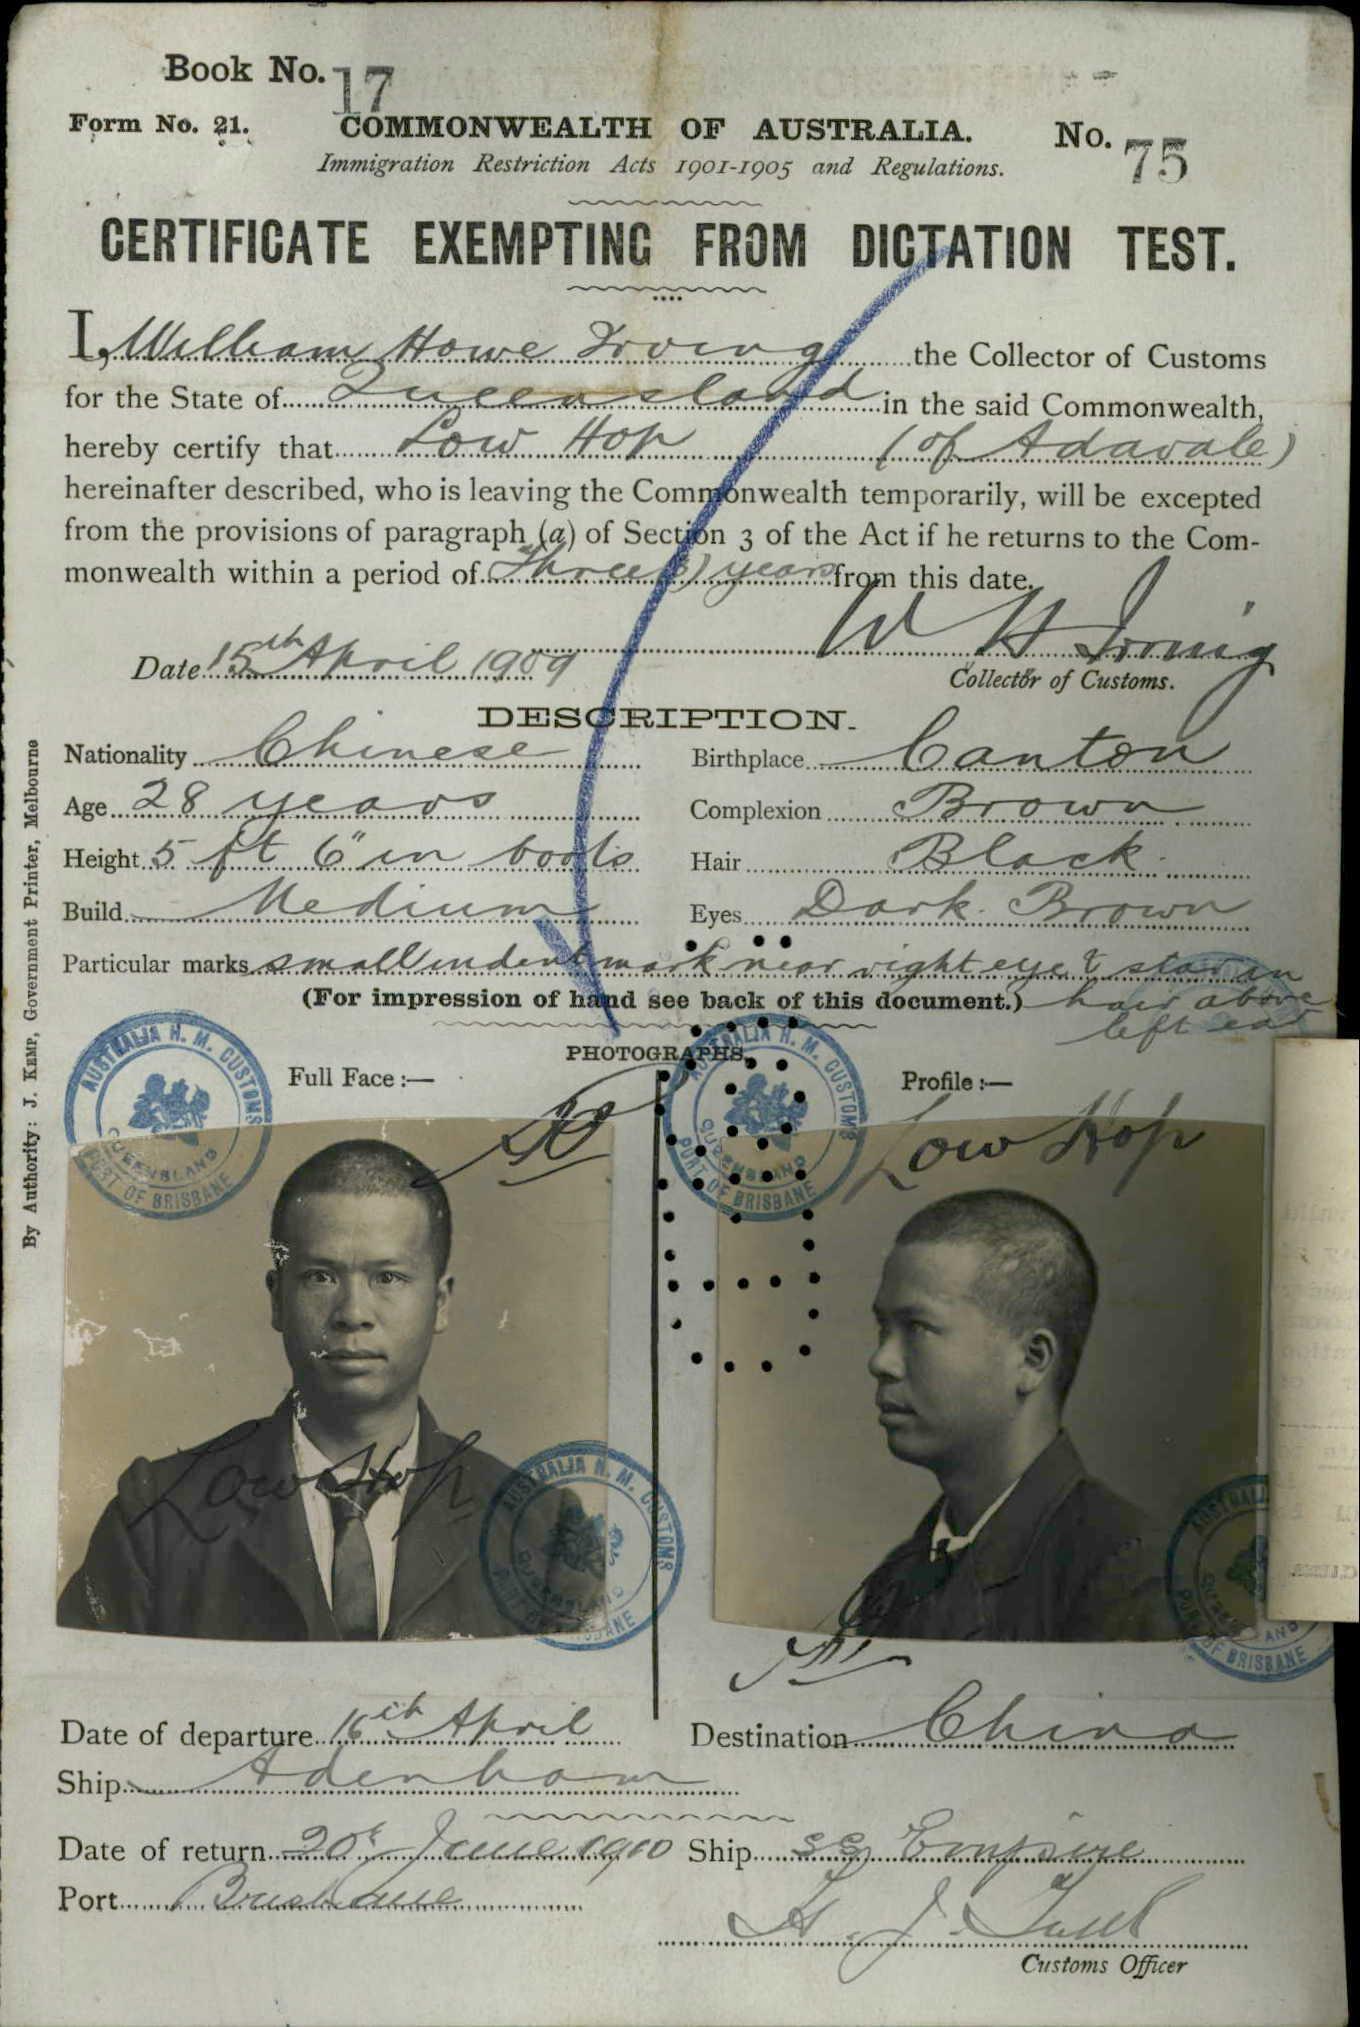 Book No. 17
Form No. 21. COMMONWEALTH OF AUSTRALIA. No. 75
Immigration Restriction Acts 1901-1905 and Regulations.
CERTIFICATE EXEMPTING FROM DICTATION TEST.
I, William Howe Irving the Collector of Customs
for the State of Queensland in the said Commonwealth,
hereby certify that Low Hop (of Adavale)
hereinafter described, who is leaving the Commonwealth temporarily, will be excepted
from the provisions of paragraph (a) of Section 3 of the Act if he returns to the Com-
monwealth within a period of Three (3) years from this date.
W H Irving
Date 15th April 1909
Collector of Customs.
DESCRIPTION.
Nationality Chinese Birthplace Canton
Age 28 years Complexion Brown
Height 5 ft 6" in boots Hair Black
Build Medium Eyes Dark Brown
Particular marks small indent mark near right eye & star in
(For impression of hand see back of this document.) hair above
left ear
PHOTOGRAPHS.
Full Face :— Profile :—
AUSTRALIA H. M. CUSTOMS QUEENSLAND PORT OF BRISBANE
AUSTRALIA H. M. CUSTOMS QUEENSLAND PORT OF BRISBANE
Low Hop
Low Hop
AUSTRALIA H. M. CUSTOMS QUEENSLAND PORT OF BRISBANE
AUSTRALIA OF BRISBANE
Date of departure 16th April Destination China
Ship Adenham
Date of return 20th June 1910 Ship SS Empire
Port Brisbane
Customs Officer
By Authority: J. KEMP, Government Printer, Melbourne